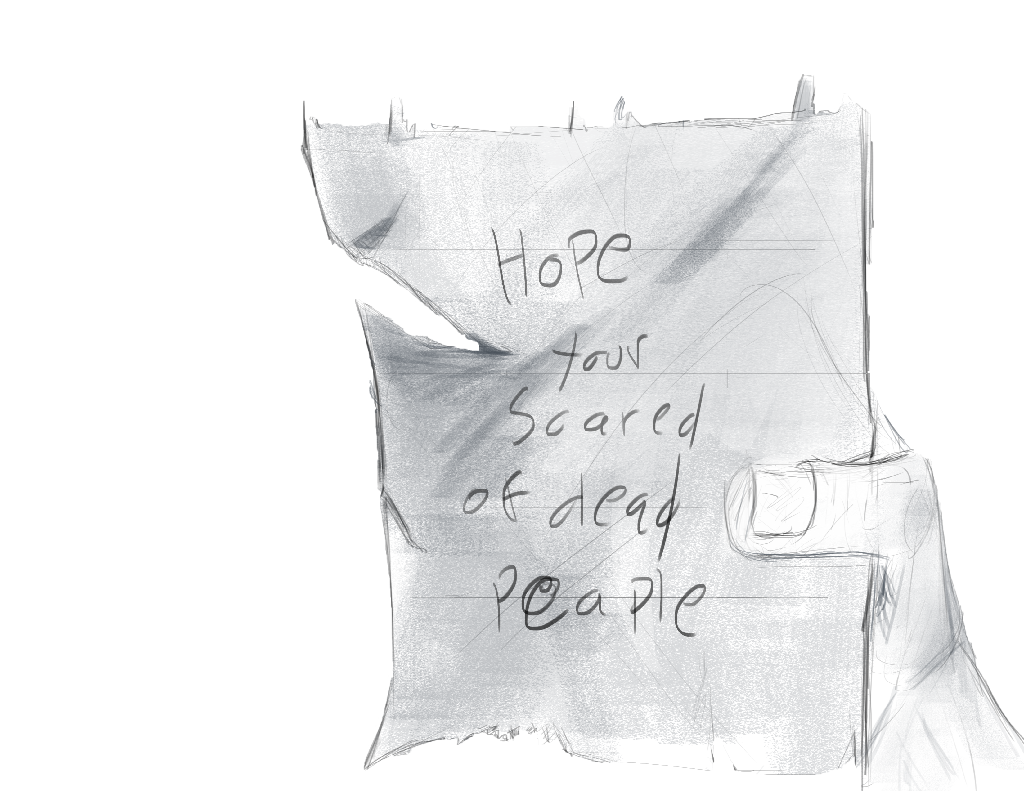 HoPe
your
Scared
of dead
Peaple